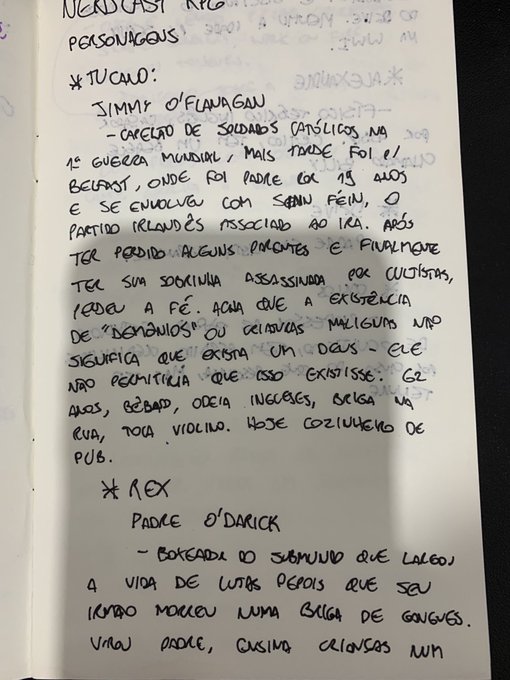 NERDCAST RPG
PERSONAGENS
* TUCANO:
JIMMY O'FLANAGAN
- CAPELÃO DE SOLDADOS CATÓLICOS NA
1ª GUERRA MUNDIAL, MAIS TARDE FOI P/
BELFAST, ONDE FOI PADRE POR 19 ANOS
E SE ENVOLVEU COM SINN FÉIN, O
PARTIDO IRLANDÊS ASSOCIADO AO IRA. APÓS
TER PERDIDO ALGUNS PARENTES E FINALMENTE
TER SUA SOBRINHA ASSASSINADA POR CULTISTAS,
PERDEU A FÉ. ACHA QUE A EXISTÊNCIA
DE "DEMÔNIOS" OU CRIATURAS MALIGNAS NÃO
SIGNIFICA QUE EXISTA UM DEUS - ELE
NÃO PERMITIRIA QUE ISSO EXISTISSE. 62
ANOS, BÊBADO, ODEIA INGLESES, BRIGA NA
RUA, TOCA VIOLINO. HOJE COZINHEIRO DE
PUB.
* REX
PADRE O'DARICK
- BOXEADOR DO SUBMUNDO QUE LARGOU
A VIDA DE LUTAS DEPOIS QUE SEU
IRMÃO MORREU NUMA BRIGA DE GANGUES.
VIROU PADRE, ENSINA CRIANÇAS NUM